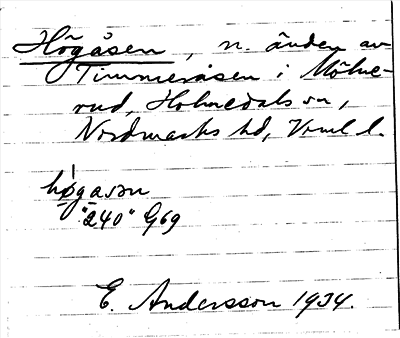 Högåsen, n. änden av
Timmeråsen i Mölne-
rud, Holmedals sn,
Nordmarks hd, Vrml l.
høgasən
"240" G69
E. Andersson 1934.